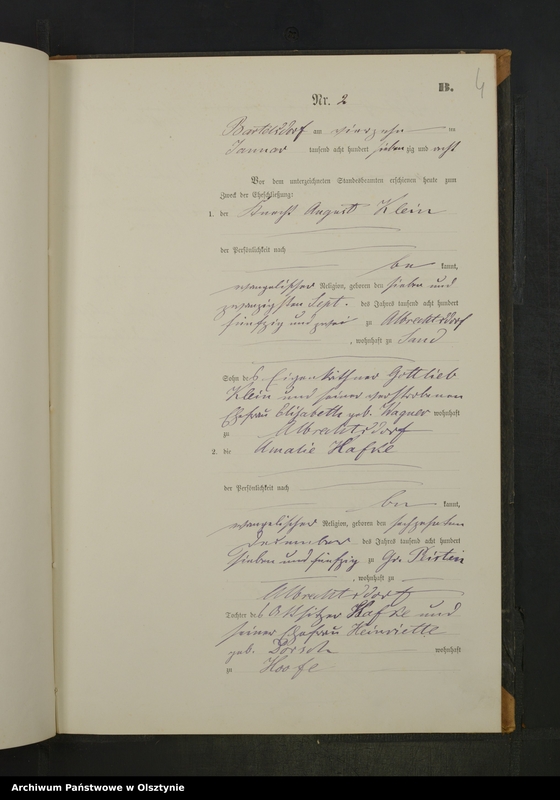 B.
4
Nr. 2
Bartelsdorf am vierzehn ten
Januar tausend acht hundert sieben zig und acht
Vor dem unterzeichneten Standesbeamten erschienen heute zum
Zweck der Eheschließung:
1. der Knecht August Klein
der Persönlichkeit nach
be kannt,
evangelischer Religion, geboren den sieben und
zwanzigsten Sept. des Jahres tausend acht hundert
fünfzig und zwei zu Albrechtsdorf
, wohnhaft zu Sand
Sohn des Eigenkäthner Gottlieb
Klein und seiner verstorbenen
Ehefrau Elisabeth geb. Wagner wohnhaft
zu Albrechtsdorf
2. die Amalie Hafke
der Persönlichkeit nach
be kannt,
evangelischer Religion, geboren den sechzehnten
Dezember des Jahres tausend acht hundert
sieben und fünfzig zu Gr.
, wohnhaft zu
Albrechtsdorf
Tochter des Hafke und
seiner Ehefrau Heinriette
geb. wohnhaft
zu Hoofe
Archiwum Państwowe w Olsztynie